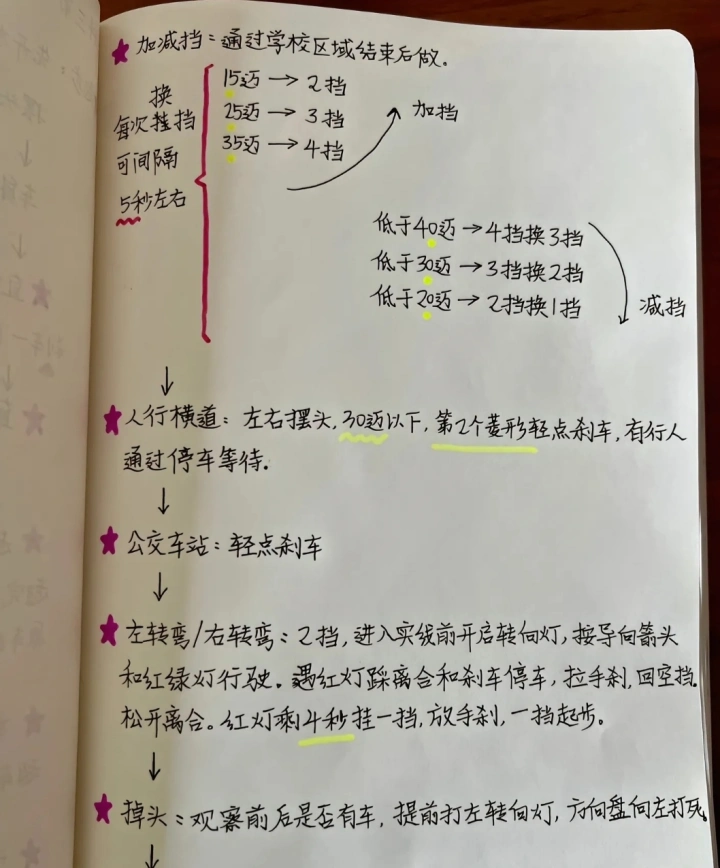 加减挡：通过学校区域结束后做.
换
每次挂挡
可间隔
5秒左右
15迈→2挡
25迈→3挡
35迈→4挡
加挡
低于40迈→4挡换3挡
低于30迈→3挡换2挡
低于20迈→2挡换1挡
减挡
↓
人行横道：左右摆头,30迈以下,第2个菱形轻点刹车,有行人
通过停车等待.
↓
公交车站：轻点刹车
↓
左转弯/右转弯：2挡,进入实线前开启转向灯,按导向箭头
和红绿灯行驶。遇红灯踩离合和刹车停车,拉手刹,回空挡,
松开离合。红灯剩4秒挂一挡,放手刹,一挡起步。
↓
掉头：观察前后是否有车,提前打左转向灯,方向盘向左打死
↓